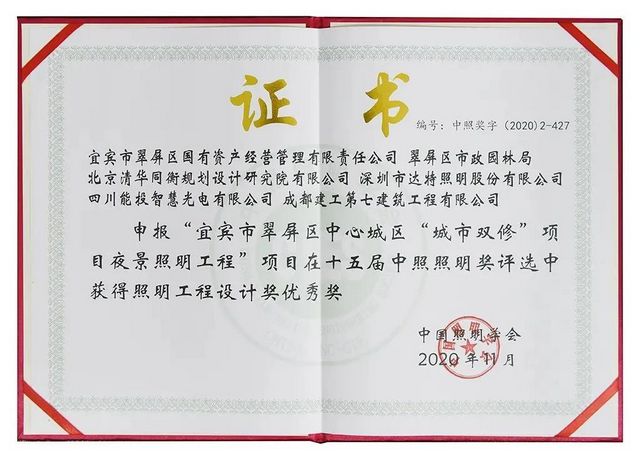 证书
编号：中照奖字（2020）2-427
宜宾市翠屏区国有资产经营管理有限责任公司 翠屏区市政园林局
北京清华同衡规划设计研究院有限公司 深圳市达特照明股份有限公司
四川能投智慧光电有限公司 成都建工第七建筑工程有限公司
申报“宜宾市翠屏区中心城区“城市双修”项
目夜景照明工程”项目在十五届中照照明奖评选中
获得照明工程设计奖优秀奖
中国照明学会
2020年11月